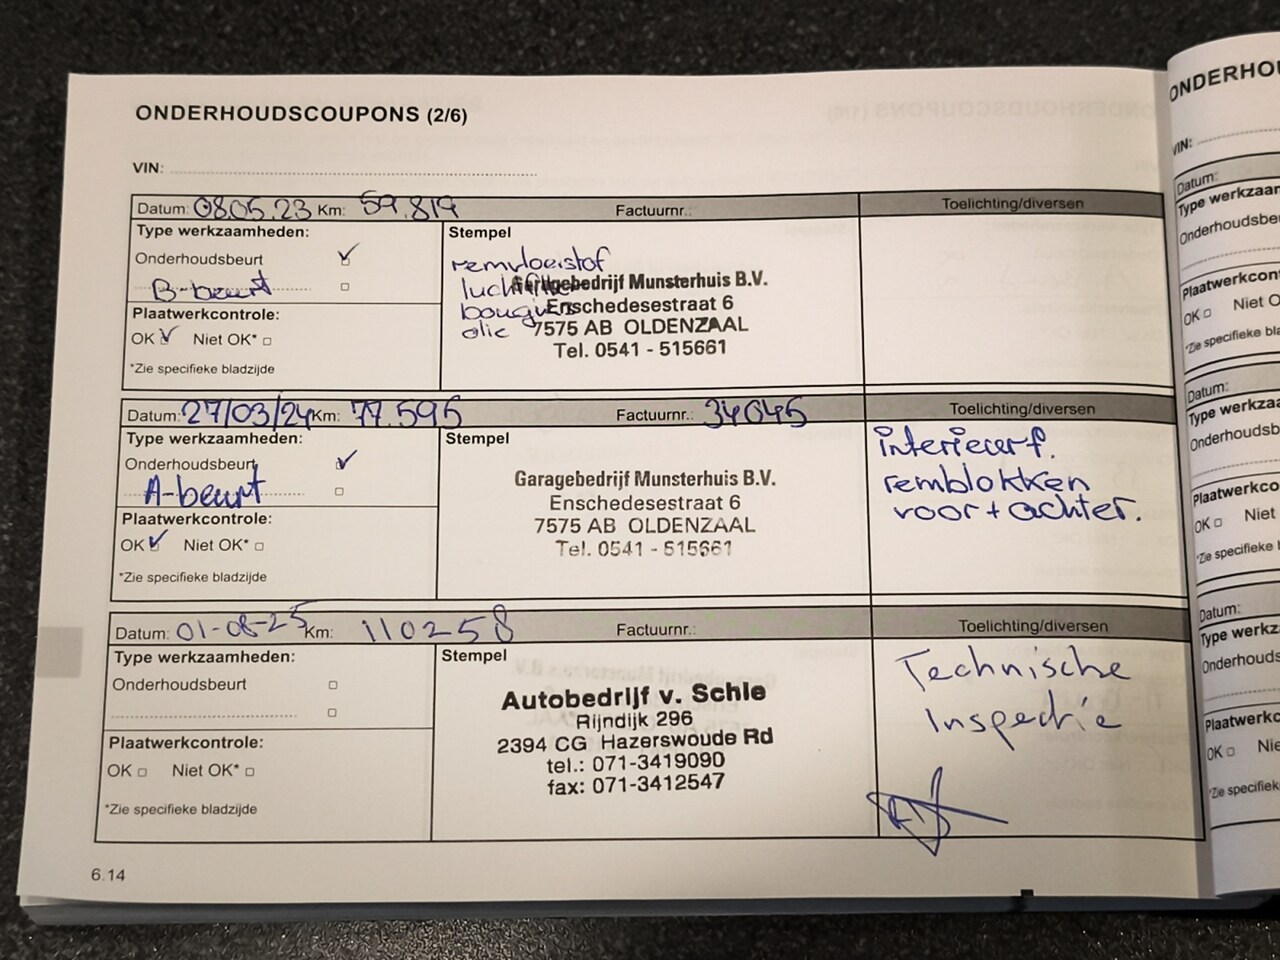 ONDERHOUDSCOUPONS (2/6)
VIN:
Datum: 08.05.23 Km: 59.819 Factuurnr.: Toelichting/diversen
Type werkzaamheden:
Onderhoudsbeurt
B-beurt
Plaatwerkcontrole:
OK Niet OK*
*Zie specifieke bladzijde
Stempel
remvloeistof
luchtfilter
bougies
olie
Garagebedrijf Munsterhuis B.V.
Enschedesestraat 6
7575 AB OLDENZAAL
Tel. 0541 - 515661
Datum: 27/03/24 Km: 77.595 Factuurnr.: 34045 Toelichting/diversen
Type werkzaamheden:
Onderhoudsbeurt
A-beurt
Plaatwerkcontrole:
OK Niet OK*
*Zie specifieke bladzijde
Stempel
Garagebedrijf Munsterhuis B.V.
Enschedesestraat 6
7575 AB OLDENZAAL
Tel. 0541 - 515661
interieurf.
remblokken
voor + achter.
Datum: 01-08-25 Km: 110258 Factuurnr.: Toelichting/diversen
Type werkzaamheden:
Onderhoudsbeurt
Plaatwerkcontrole:
OK Niet OK*
*Zie specifieke bladzijde
Stempel
Autobedrijf v. Schie
Rijndijk 296
2394 CG Hazerswoude Rd
tel.: 071-3419090
fax: 071-3412547
Technische
Inspectie
6.14
ONDERHO
VIN:
Datum:
Type werkzaam
Onderhoudsbeu
Plaatwerkcontr
OK Niet O
*Zie specifieke bla
Datum:
Type werkzaa
Onderhoudsb
Plaatwerkco
OK Niet
*Zie specifieke
Datum:
Type werkz
Onderhouds
Plaatwerkc
OK Nie
*Zie specifieke